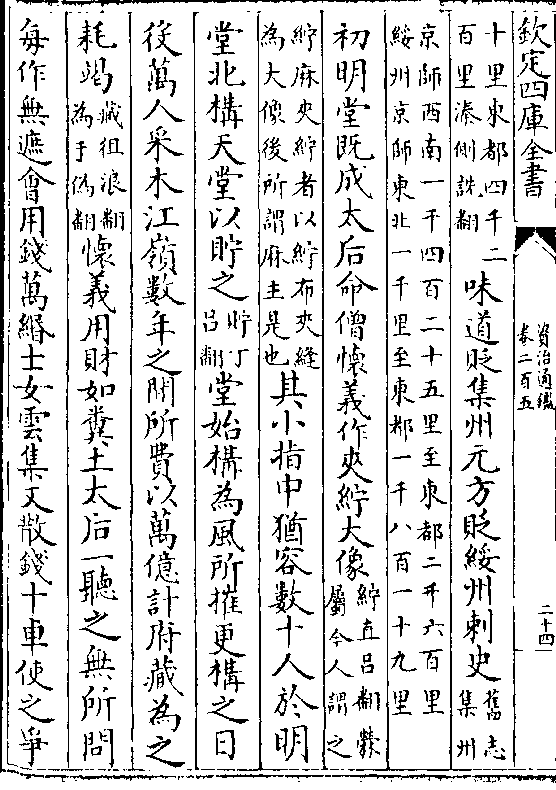 欽定四庫全書
資治通鑑
卷二百五
二十四
十里東都四千二
百里溱側詵翻
味道貶集州元方貶綏州刺史
舊志
集州
京師西南一千四百二十五里至東都二千六百里
綏州京師東北一千里至東都一千八百一十九里
初明堂既成太后命僧懷義作夾紵大像
紵直吕翻檾
屬今人謂之
紵麻夾紵者以紵布夾縫
為大像後所謂麻主是也
其小指中猶容數十人於明
堂北構天堂以貯之
貯丁
吕翻
堂始構為風所摧更構之日
役萬人采木江嶺數年之間所費以萬億計府藏為之
耗竭
藏徂浪翻
為于偽翻
懷義用財如糞土太后一聽之無所問
每作無遮會用錢萬緡士女雲集又散錢十車使之爭